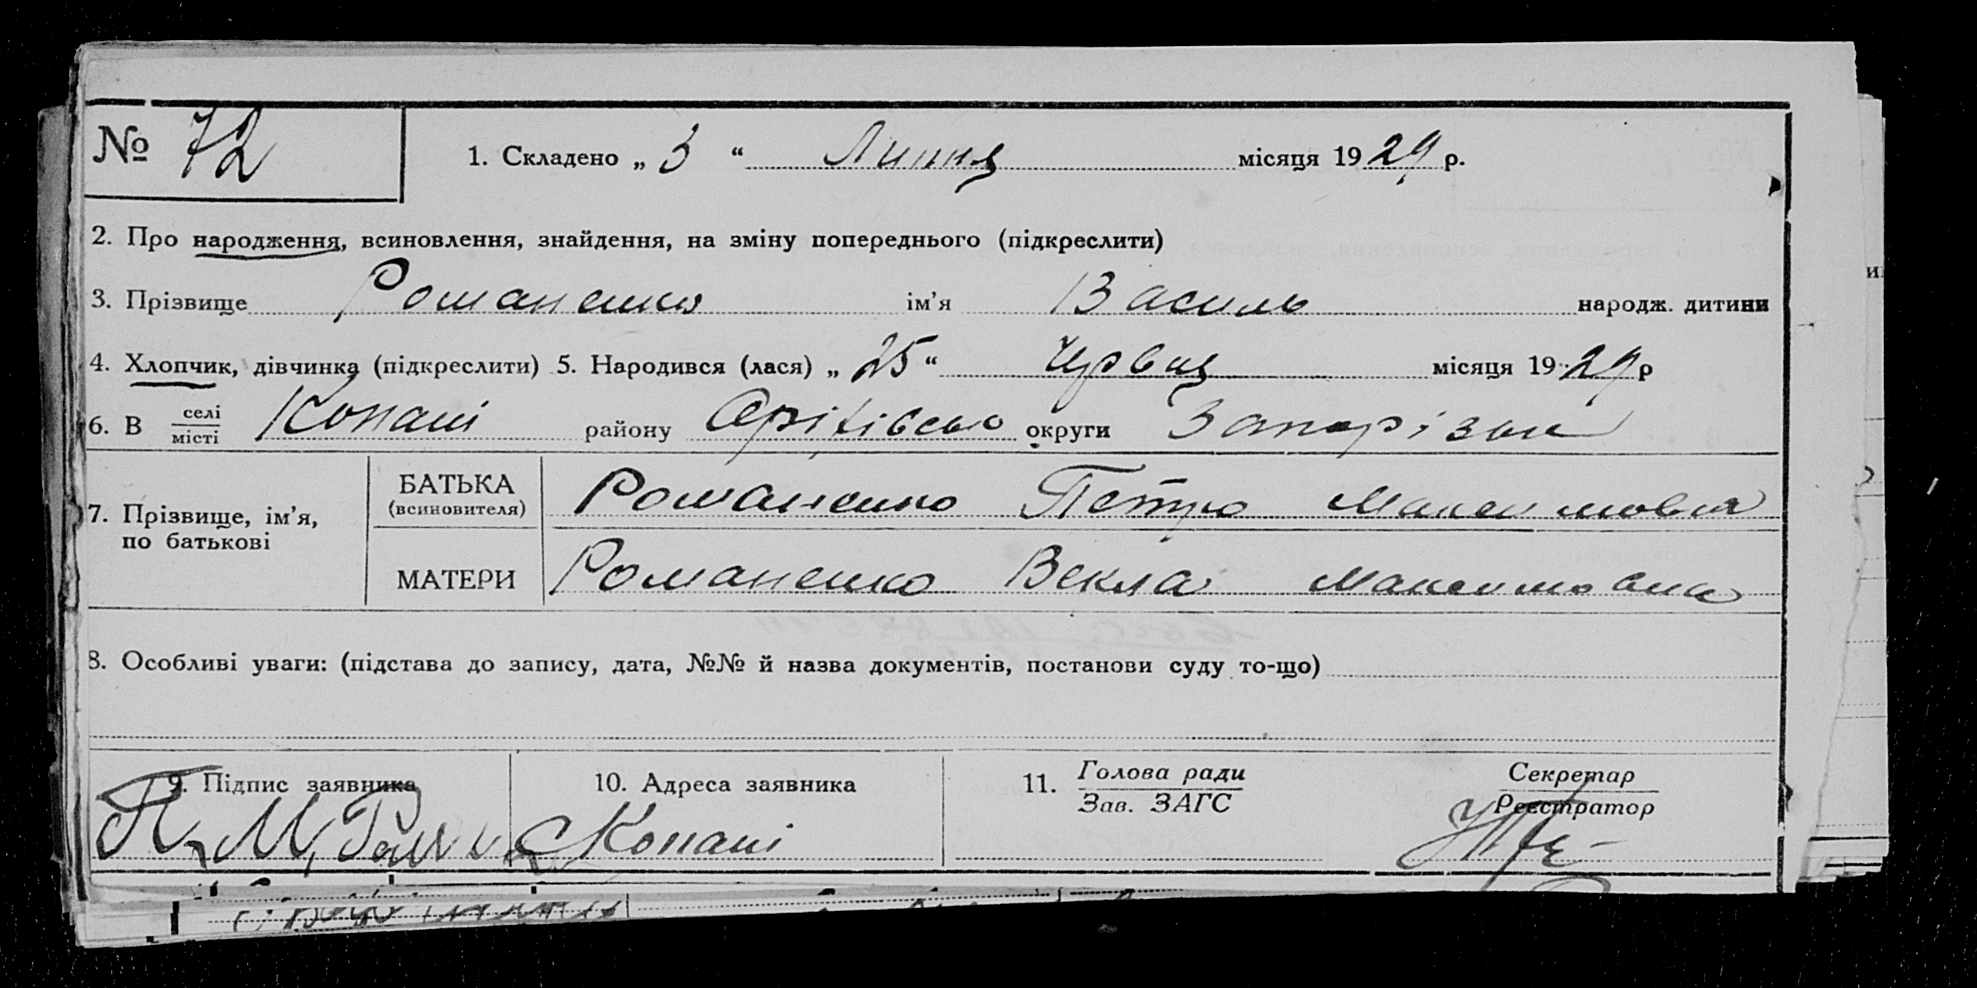 № 72
1. Складено „ 3 “ Липня місяця 1929 р.
2. Про народження, всиновлення, знайдення, на зміну попереднього (підкреслити)
3. Прізвище Романенко ім’я Василь народж. дитини
4. Хлопчик, дівчинка (підкреслити) 5. Народився (лася) „ 25 “ Червня місяця 1929 р
6. В селі
місті Копані району Оріхівсько округи Запорізьк
7. Прізвище, ім’я,
по батькові
БАТЬКА
(всиновителя)
Романенко Петро Максимович
МАТЕРИ
Романенко Векла Максимовна
8. Особливі уваги: (підстава до запису, дата, №№ й назва документів, постанови суду то-що)
9. Підпис заявника
П. М.
10. Адреса заявника
с Копані
11. Голова ради
Зав. ЗАГС
Секретар
Реєстратор